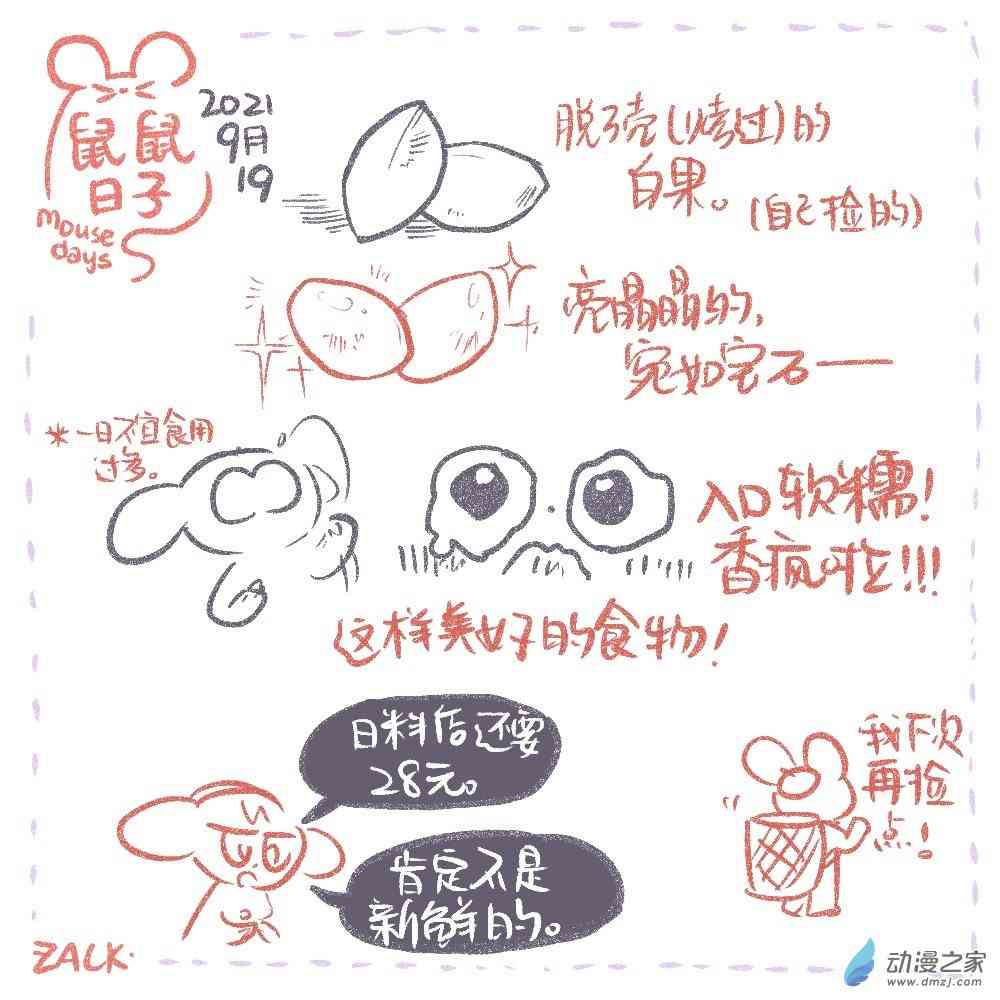 鼠鼠
日子
mouse
days
2021
9月
19
脱了壳(烤过)的
白果。(自己捡的)
亮晶晶的,
宛如宝石——
*一日不宜食用
过多。
入口软糯!
香疯啦!!!
这样美好的食物!
日料店还要
28元。
肯定不是
新鲜的。
我下次
再捡
点!
ZALK.
动漫之家
www.dmzj.com